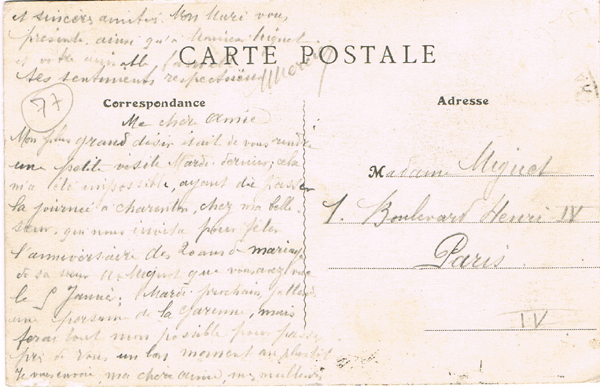 et sincères amitiés. Mon Mari vous
présente, ainsi qu'à Monsieur Miguet
et votre aimable
ses sentiments respectueux
CARTE POSTALE
77
Correspondance
Adresse
Ma chère amie
Mon plus grand désir était de vous rendre
une petite visite Mardi dernier; cela
m'a été impossible, ayant dû passer
la journée à Charenton, chez ma belle
sœur, qui nous invita pour fêter
l'anniversaire des 20 ans de mariage
de sa sœur que vous avez vue
le 5 Janvier; Mardi prochain, j'attends
une personne de la Garenne, mais
ferai tout mon possible pour passer
près de vous un bon moment au plus tôt
Je vous envoie, ma chère amie, mes meilleures
Madame Miguet
1. Boulevard Henri IV
Paris
IV